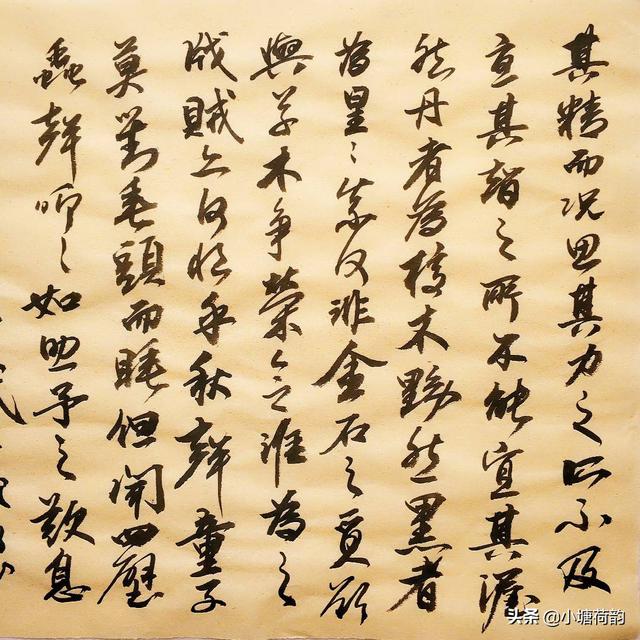 其精而况思其力之所不及
憂其智之所不能宜其渥
然丹者為槁木黟然黑者
為星〻奈何非金石之質欲
與草木爭榮念誰為之
戕賊亦何恨乎秋聲童子
莫對垂頭而睡但聞四壁
蟲聲唧〻如助予之歎息
头条 @小塘荷韵